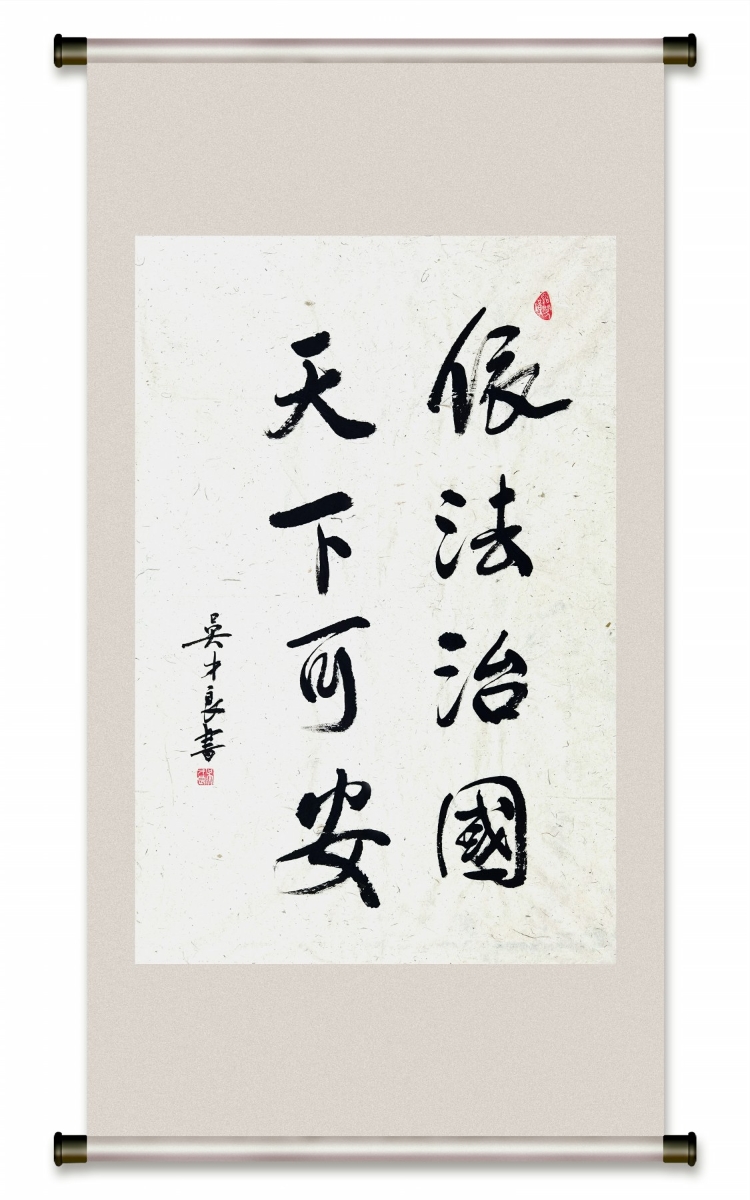 依法治國
天下可安
吳才良書